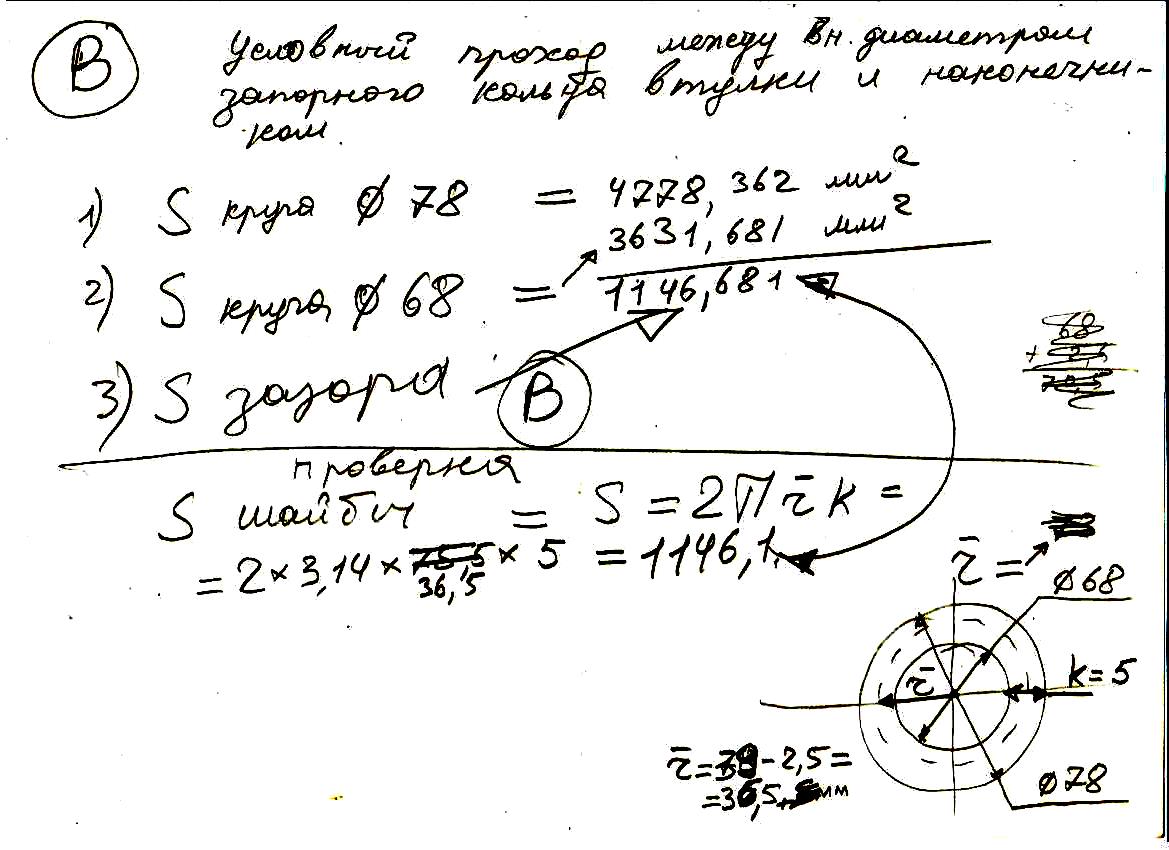 В
Условный проход между вн. диаметром
запорного кольца втулки и наконечни-
ком.
1) S круга ϕ 78 = 4778,362 мм²
3631,681 мм²
2) S круга ϕ 68 = 1146,681
68
+ 2,5
70,5
3) S зазора
В
проверка
S шайбы = S = 2П r̄ k =
= 2 × 3,14 × 75,5 × 5 = 1146,1
36,5
r̄ =
ϕ 68
r̄
k = 5
r̄ = 39 - 2,5 =
= 36,5 мм
ϕ 78